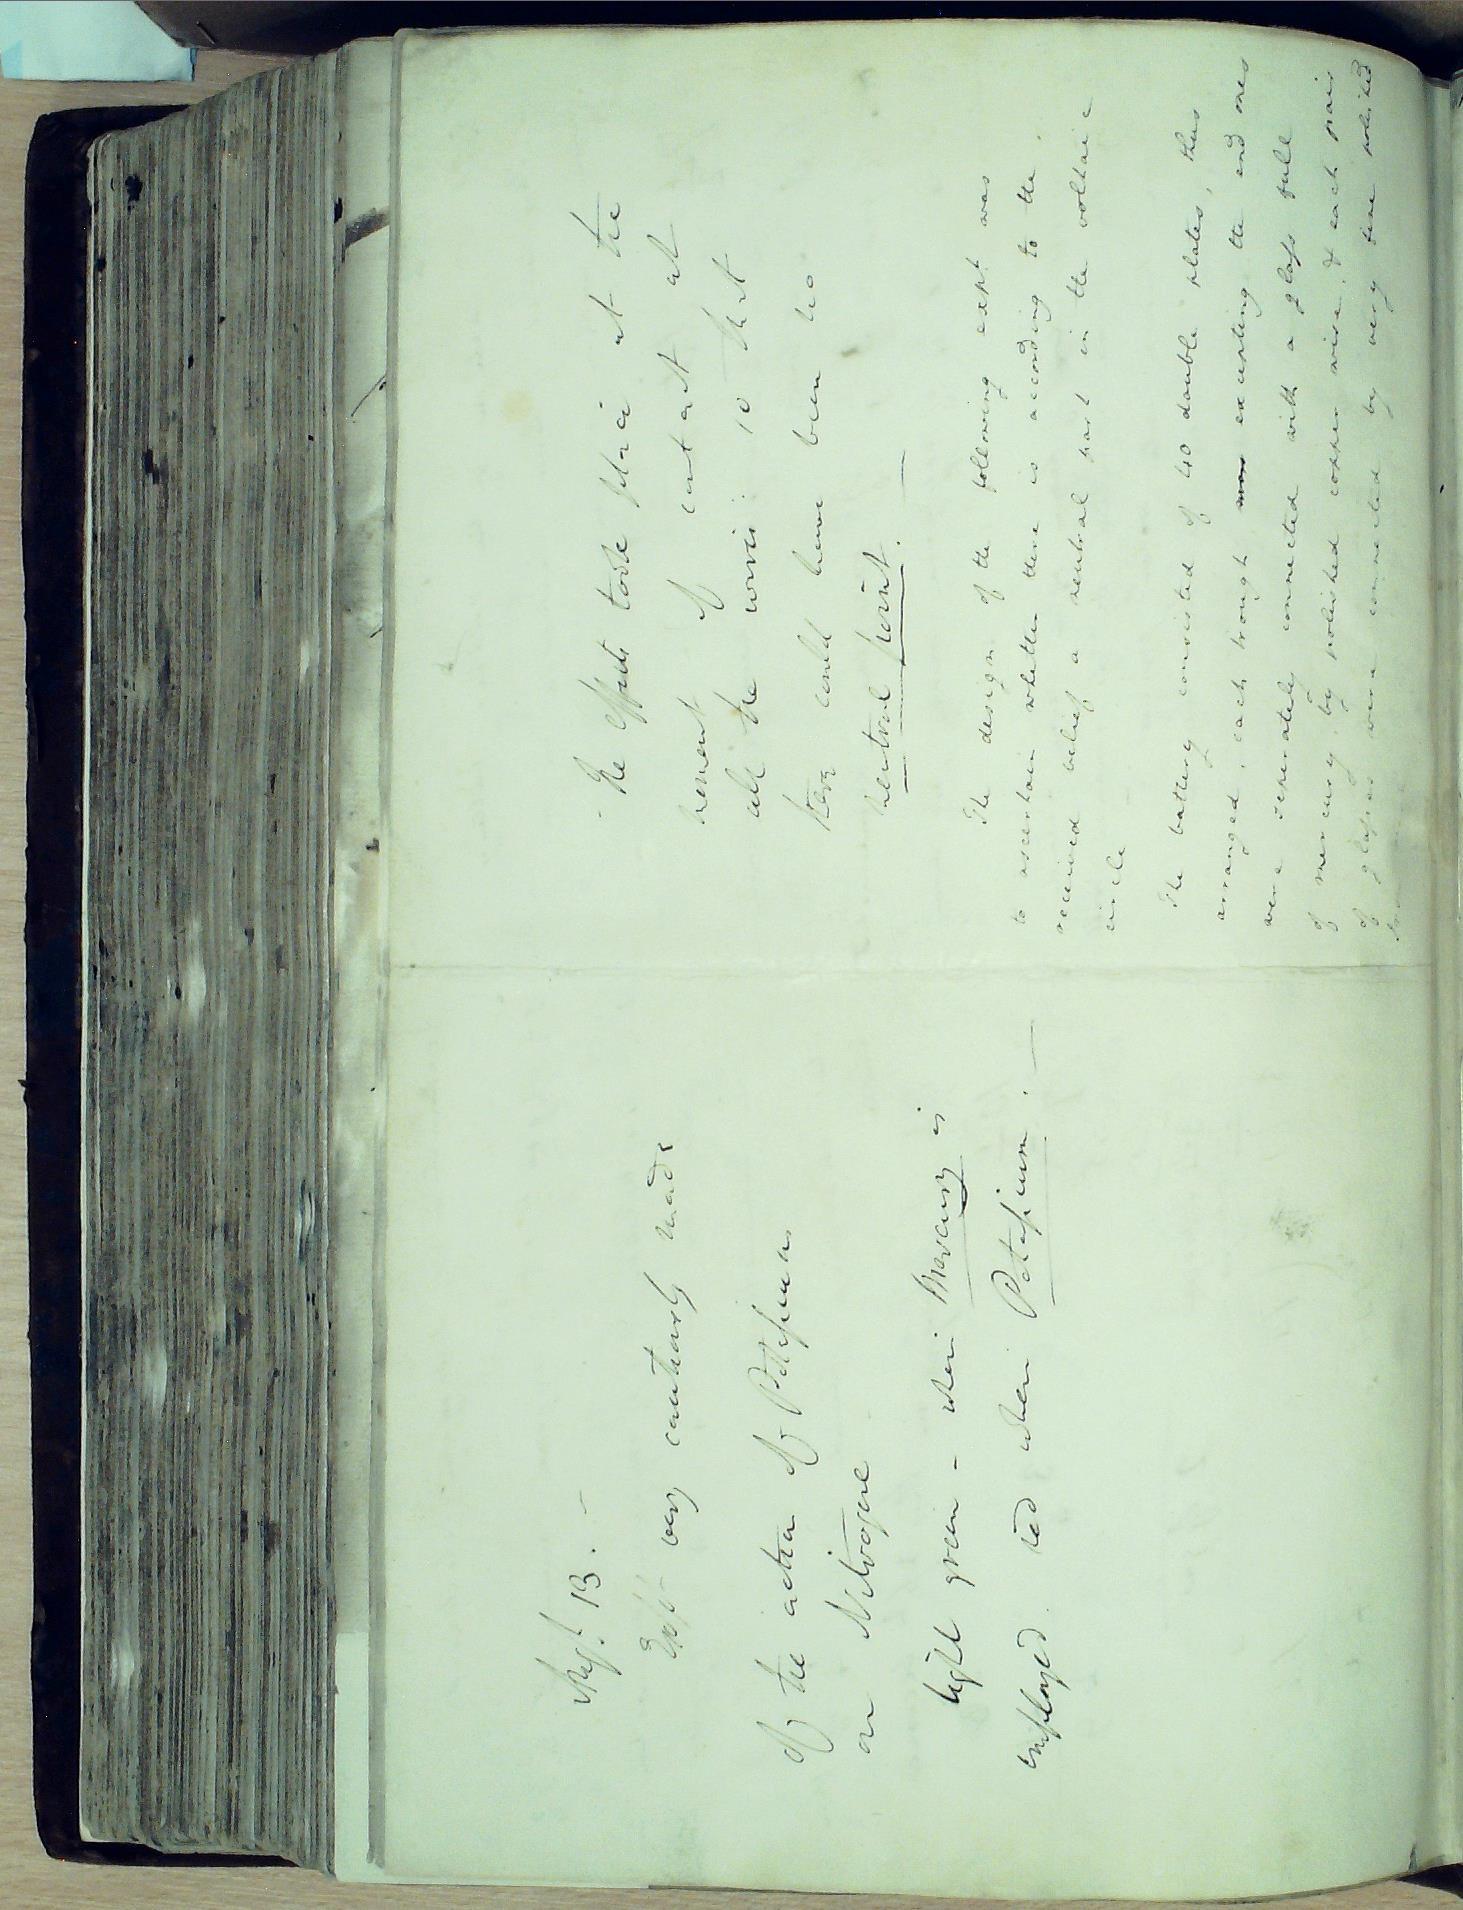 Augt. 13. —
Expt very cautiously made
of the action of Potassium
on Nitrogene
light green - when Mercury is
employed. red when Potassium. —
- The effects took place at the
moment of contact at
all the wires: so that
there could have been no
neutral point. —
The design of the following expt was
to ascertain whether there is according to the
received belief a neutral part in the voltaic
circle
The battery consisted of 40 double plates, thus
arranged, each trough was excepting the end ones
were seperately connected with a glass full
of mercury, by polished copper wire, & each pair
of glasses were connected by very fine polished